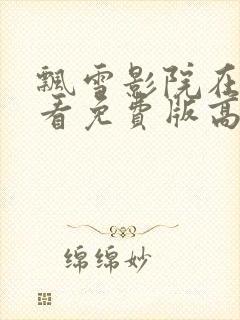 飘雪影院在
看免费版高
绵绵妙